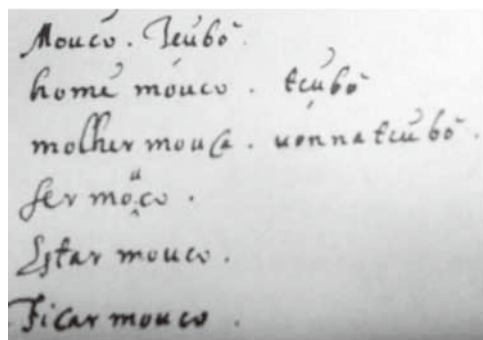 Mouco. Tcũbõ.
homẽ mouco. tcũbõ
molher mouca. uonna tcũbõ.
Ser mouco.
Estar mouco.
Ficar mouco.